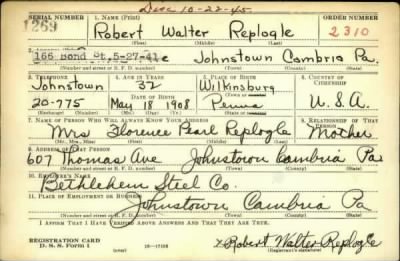 Disc 10-22-45
SERIAL NUMBER 1. NAME (Print) ORDER NUMBER
1269 Robert Walter Replogle 2310
(First) (Middle) (Last)
166 Bond St. 5-27-41 Ave Johnstown Cambria Pa.
(Number and street or R. F. D. number) (Town) (County) (State)
3. TELEPHONE 4. AGE IN YEARS 5. PLACE OF BIRTH 6. COUNTRY OF CITIZENSHIP
Johnstown 32 Wilkinsburg
DATE OF BIRTH (Town or county)
20-775 May 18 1908 Penna U. S. A.
(Exchange) (Number) (Mo.) (Day) (Yr.) (State or country)
7. NAME OF PERSON WHO WILL ALWAYS KNOW YOUR ADDRESS 8. RELATIONSHIP OF THAT PERSON
Mrs Florence Pearl Replogle Mother
(Mr., Mrs., Miss) (First) (Middle) (Last)
9. ADDRESS OF THAT PERSON
607 Thomas Ave Johnstown Cambria Pa
(Number and street or R. F. D. number) (Town) (County) (State)
10. EMPLOYER'S NAME
Bethlehem Steel Co.
11. PLACE OF EMPLOYMENT OR BUSINESS
Johnstown Cambria Pa
(Number and street or R. F. D. number) (Town) (County) (State)
I AFFIRM THAT I HAVE VERIFIED ABOVE ANSWERS AND THAT THEY ARE TRUE.
REGISTRATION CARD
D. S. S. Form 1 16-17105 x Robert Walter Replogle
(Registrant's signature)